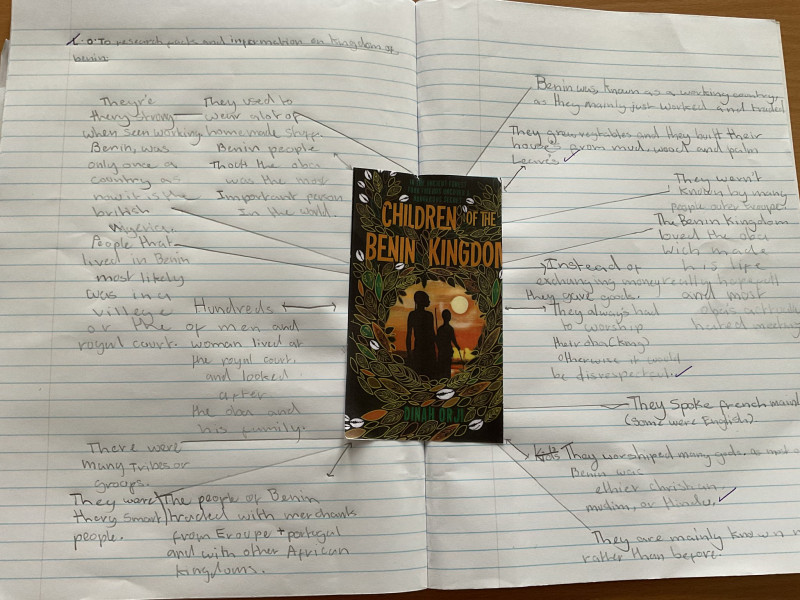 L.O: To research facts and information on Kingdom of
benin.
They're
thery strong
when seen working
Benin, was
only once a
country as
now it is the
british
Nigeria.
They used to
wear alot of
homemade stuff.
Benin people
Thoth the oba
was the most
Important person
In the world.
People that
lived in Benin
most likely
was in a
villege
or the
royal court.
Hundreds
of men and
woman lived at
the royal court.
and looked
after
the oba and
his family.
There were
many tribes or
groups.
They were
thery smart
people.
The people of Benin
traded with merchants
from Eroupe + portugal
and with other African
kingdoms.
CHILDREN OF THE
BENIN KINGDOM
DINAH ORJI
Benin was known as a working country,
as they mainly just worked and traded
They grew vegtables and they built their
houses from mud, wood and palm
Leaves.
They weren't
known by many
people
The Benin Kingdom
loved the oba
wich made
his life
really
and most
hated meetings
Instead of
exchanging money
they gave goods.
They always had
to worship
their oba (king)
otherwise it would
be disrespectful.
They spoke french main
(some were English)
They worshiped many gods, as most of
Benin was
ethier christian,
muslim, or Hindu.
They are mainly known n
rather than before.